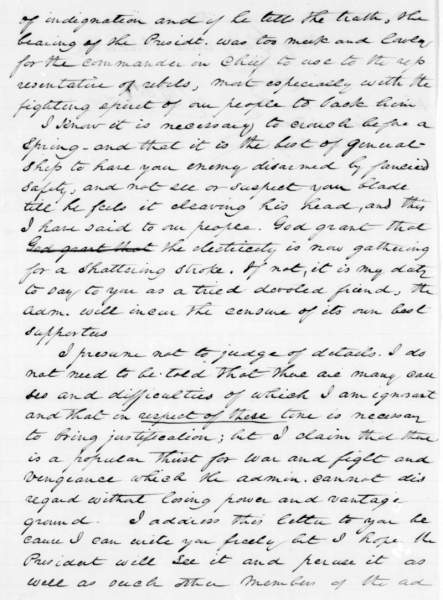 of indignation and if he tells the truth, the
bearing of the Preside. was too meek and lowly
for the commander in Chief to use to the rep
resentative of rebels, most especially with the
fighting spirit of our people to back him
I Know it is necessary to crouch before a
spring - and that it is the best of General-
ship to have your enemy disarmed by fancied
safety, and not see or suspect your blade
till he feels it cleaving his head, and this
I have said to our people. God grant that
God grant that the electricity is now gathering
for a shattering stroke. If not, it is my duty
to say to you as a tried devoted friend, the
adm. will incur the censure of its own best
supporters
I presume not to judge of details. I do
not need to be told that there are many cau
ses and difficulties of which I am ignorant
and that in respect of these time is necessary
to bring justification; but I claim that there
is a popular thirst for war and fight and
vengeance which the admin. cannot dis
regard without losing power and vantage
ground. I address this letter to you be
cause I can write you freely but I hope the
President will see it and peruse it as
well as such other members of the ad